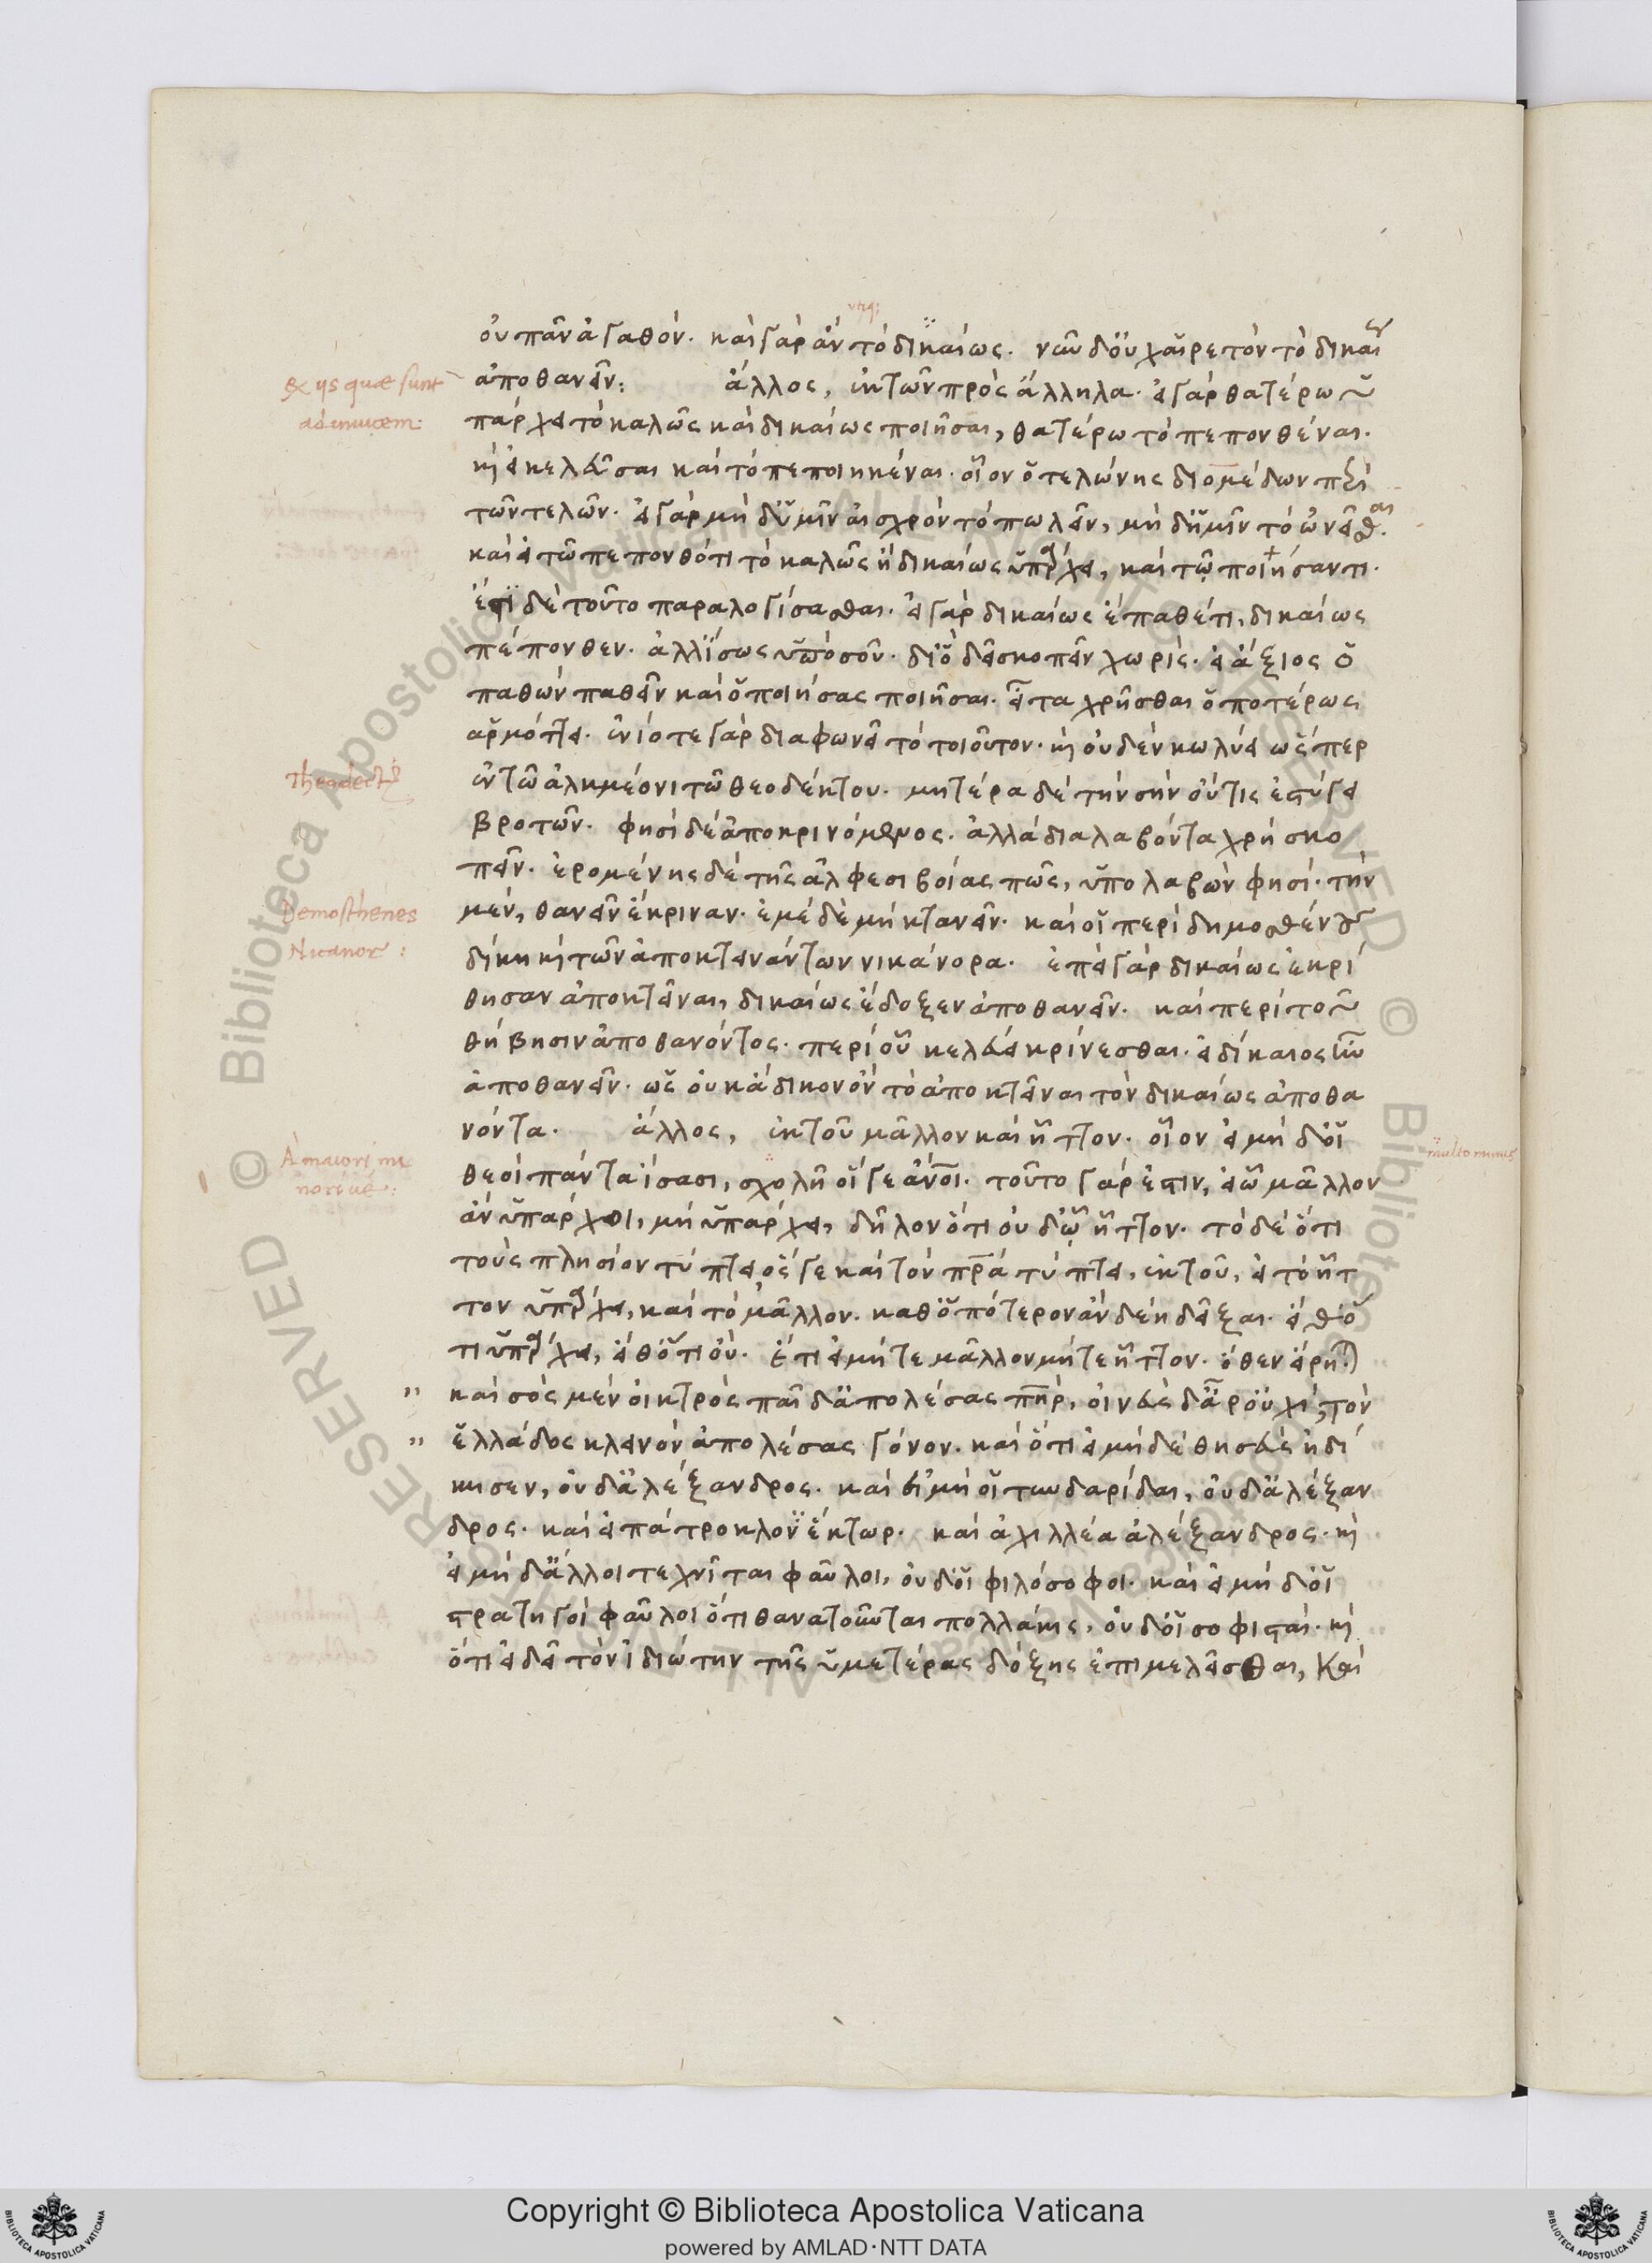 utiq;
οὐ πᾶν ἀγαθόν. καὶ γὰρ ἂν τὸ δικαίως. νῦν δ' οὐχ αἱρετὸν τὸ δικαίως
ex ijs quae sunt
ad inuicem:
ἀποθανεῖν: ἄλλος, ἐκ τῶν πρὸς ἄλληλα. εἰ γὰρ θατέρω ὑ
πάρχει τὸ καλῶς καὶ δικαίως ποιῆσαι, θατέρω τὸ πεπονθέναι.
κὶ εἰ κελεῦσαι καὶ τὸ πεποιηκέναι. οἷον ὁ τελώνης διομέδων περὶ
τῶν τελῶν. εἰ γὰρ μὴ δ' ὑμῖν αἰσχρὸν τὸ πωλεῖν, μὴ δ' ἡμῖν τὸ ὠνεῖσθαι.
καὶ εἰ τῶ πεπονθότι τὸ καλῶς ἢ δικαίως ὑπάρχει, καὶ τῶ ποιήσαντι.
ἔστι δὲ τοῦτο παραλογίσασθαι. εἰ γὰρ δικαίως ἔπαθέ τι, δικαίως
πέπονθεν. ἀλλ' ἴσως οὐχ ὑπὸ σοῦ. διὸ δεῖ σκοπεῖν χωρὶς. εἰ ἄξιος ὁ
παθὼν παθεῖν καὶ ὁ ποιήσας ποιῆσαι. εἶτα χρῆσθαι ὁποτέρως
ἁρμόττει. ἐνίοτε γὰρ διαφωνεῖ τὸ τοιοῦτον. κὶ οὐδὲν κωλύει ὥσπερ
Theodectes
ἐν τῶ ἀλκμέονι τῶ θεοδέκτου. μητέρα δὲ τὴν σὴν οὔτις ἐστύγει
βροτῶν. φησὶ δὲ ἀποκρινόμενος. ἀλλὰ διαλαβόντα χρὴ σκο
πεῖν. ἐρομένης δὲ τῆς ἀλφεσιβοίας πῶς, ὑπολαβὼν φησί. τὴν
Demosthenes
Nicanor:
μὲν, θανεῖν ἔκριναν. ἐμὲ δὲ μὴ κτανεῖν. καὶ οἱ περὶ δημοσθένους
δίκη κὶ τῶν ἀποκτεινάντων νικάνορα. ἐπεὶ γὰρ δικαίως ἐκρί
θησαν ἀποκτεῖναι, δικαίως ἔδοξεν ἀποθανεῖν. καὶ περὶ τοῦ
θήβησιν ἀποθανόντος. περὶ οὗ κελεύει κρίνεσθαι. εἰ δίκαιος ἦν
ἀποθανεῖν. ὡς οὐκ ἄδικον ὂν τὸ ἀποκτεῖναι τὸν δικαίως ἀποθα
νόντα. ἄλλος, ἐκ τοῦ μᾶλλον καὶ ἧττον. οἷον εἰ μὴ δ' οἱ
A maiori mi
nori ue:
multo minus
θεοὶ πάντα ἴσασι, σχολῆ οἵ γε ἄνοι. τοῦτο γάρ ἐστιν, εἰ ὧ μᾶλλον
ἂν ὑπάρχοι, μὴ ὑπάρχει, δῆλον ὅτι οὐ δ' ὧ ἧττον. τὸ δὲ ὅτι
τοὺς πλησίον τύπτει ὅς γε καὶ τὸν πρα τύπτει, ἐκ τοῦ, εἰ τὸ ἧτ
τον ὑπάρχει, καὶ τὸ μᾶλλον. καθ' ὁπότερον ἂν δέη δεῖξαι. εἴθ' ὅ
τι ὑπάρχει, εἴθ' ὅτι οὔ. ἔτι εἰ μήτε μᾶλλον μήτε ἧττον. ὅθεν εἴρηται
" καὶ σὸς μὲν οἰκτρὸς παῖδ' ἀπολέσας πηρ, οἰνεὺς δ' ἄρ' οὐχὶ, τὸν
" ἑλλάδος κλεινὸν ἀπολέσας γόνον. καὶ ὅτι εἰ μὴ δὲ θησεὺς ἠδί
κησεν, οὐδ' ἀλέξανδρος. καὶ εἰ μὴ οἱ τυνδαρίδαι, οὐδ' ἀλέξαν
δρος. καὶ εἰ πάτροκλον ἕκτωρ. καὶ ἀχιλλέα ἀλέξανδρος. κὶ
εἰ μὴ δ' ἄλλοι τεχνῖται φαῦλοι, οὐδ' οἱ φιλόσοφοι. καὶ εἰ μὴ δ' οἱ
στρατηγοὶ φαῦλοι ὅτι θανατοῦνται πολλάκις, οὐδ' οἱ σοφισταί. κὶ
ὅτι εἰ δεῖ τὸν ἰδιώτην τῆς ὑμετέρας δόξης ἐπιμελεῖσθαι, καὶ
RESERVED © Biblioteca Apostolica Vaticana ALL RIGHTS RESERVED © Biblioteca Apostolica Vaticana ALL RIGHTS
Copyright © Biblioteca Apostolica Vaticana
powered by AMLAD・NTT DATA
BIBLIOTECA APOSTOLICA VATICANA
BIBLIOTECA APOSTOLICA VATICANA